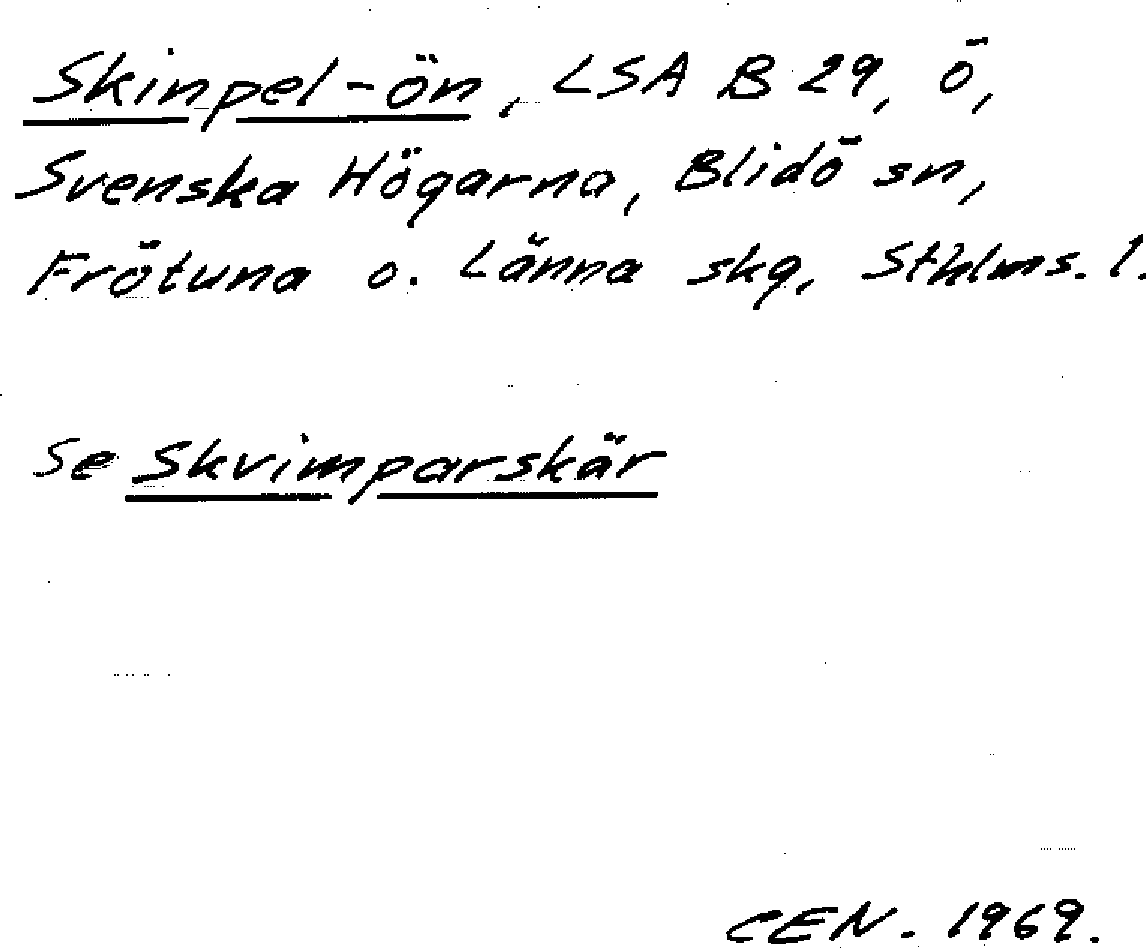 Skinpel-ön, LSA B 29, ö,
Svenska Högarna, Blidö sn,
Frötuna o. Länna skg, Sthlms. l.
Se Skvimparskär
CEN. 1969.